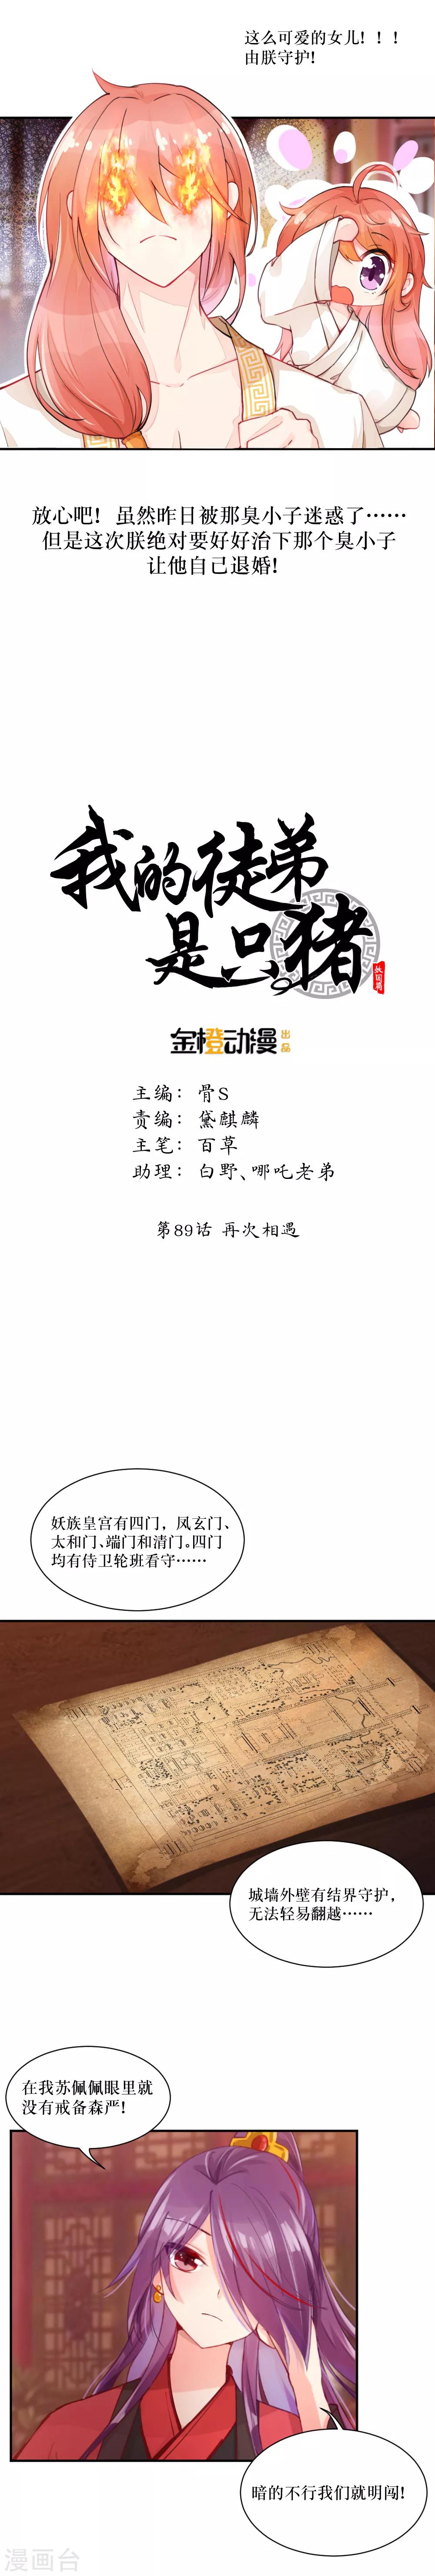 这么可爱的女儿！！！
由朕守护！
放心吧！虽然昨日被那臭小子迷惑了……
但是这次朕绝对要好好治下那个臭小子
让他自己退婚！
我的徒弟
是只猪
金橙动漫 出品
主编：骨S
责编：黛麒麟
主笔：百草
助理：白野、哪吒老弟
第89话 再次相遇
妖族皇宫有四门，凤玄门、
太和门、端门和清门。四门
均有侍卫轮班看守……
城墙外壁有结界守护，
无法轻易翻越……
在我苏佩佩眼里就
没有戒备森严！
暗的不行我们就明闯！
漫画台